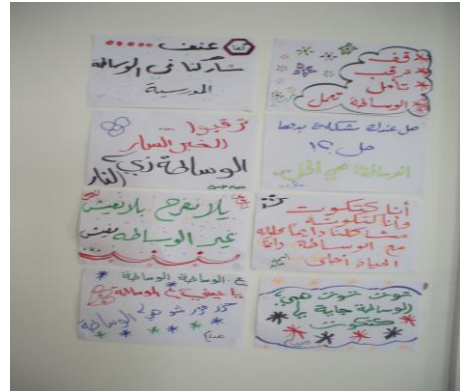 كفا عنف
شاركنا في الوساطة
المدرسية
قف
رقب
تأمل
الوساطة تعمل
ترقبوا ...
الخبر السار
الوساطة زي النار
هل عندك مشكلة بدها
حل ؟!
الوساطة هي الحل
يلا نفرح يلا نعيش
غير الوساطة مفيش
أنا كتكوت
وأنا كتكوتة
مشاكلنا دايما
مع الوساطة دايما
الحياة أحلى
ع الوساطة الوساطة
الوساطة
توت توت هي
الوساطة جاية يا
كتكوت